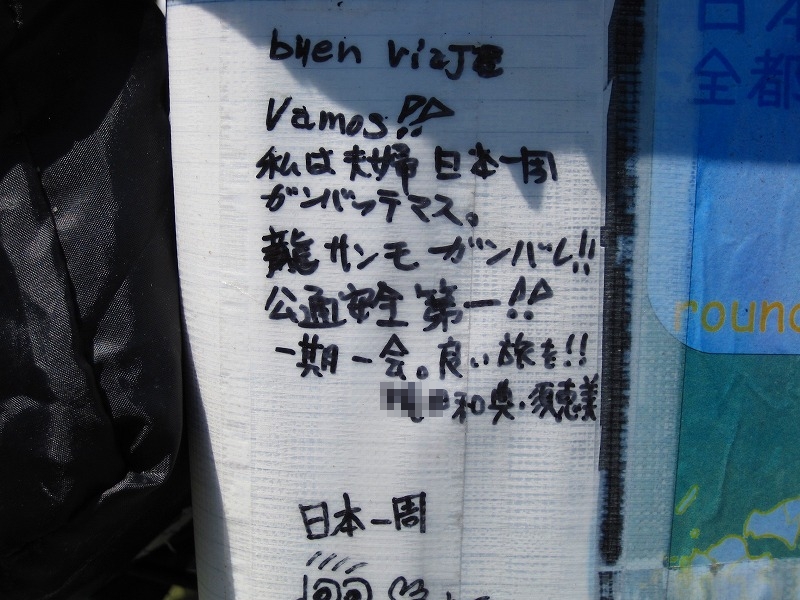 buen viaje
Vamos!!
私は夫婦日本一周
ガンバッテマス。
龍サンモガンバレ!!
公通安全第一!!
一期一会。良い旅を!!
和典・須恵美
日本一周
日本
全都
round